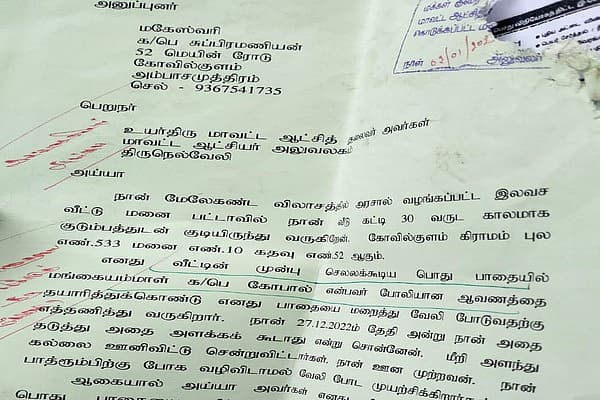 அனுப்புனர்
மகேஸ்வரி
க/பெ சுப்பிரமணியன்
52 மெயின் ரோடு
கோவில்குளம்
அம்பாசமுத்திரம்
செல் - 9367541735
நாள் 02/01/202
அலுவலர்
பெறுநர்
உயர்திரு மாவட்ட ஆட்சித் தலைவர் அவர்கள்
மாவட்ட ஆட்சியர் அலுவலகம்
திருநெல்வேலி
அய்யா
நான் மேலேகண்ட விலாசத்தில் அரசால் வழங்கப்பட்ட இலவச
வீட்டு மனை பட்டாவில் நான் வீடு கட்டி 30 வருட காலமாக
குடும்பத்துடன் குடியிருந்து வருகிறேன். கோவில்குளம் கிராமம் புல
எண்.533 மனை எண்.10 கதவு எண்.52 ஆகும்.
எனது வீட்டின் முன்பு செல்லக்கூடிய பொது பாதையில்
மங்கையம்மாள் க/பெ கோபால் என்பவர் போலியான ஆவணத்தை
தயாரித்துக்கொண்டு எனது பாதையை மறைத்து வேலி போடுவதற்கு
எத்தணித்து வருகிறார். நான் 27.12.2022ம் தேதி அன்று நான் அதை
தடுத்து அதை அளக்கக் கூடாது என்று சொன்னேன். மீறி அளந்து
கல்லை ஊனிவிட்டு சென்றுவிட்டார்கள். நான் ஊன முற்றவன். நான்
பாத்ரூம்பிற்கு போக வழிவிடாமல் வேலி போட முயற்சிக்கிறார்கள்
ஆகையால் அய்யா அவர்கள் எனது
பொது